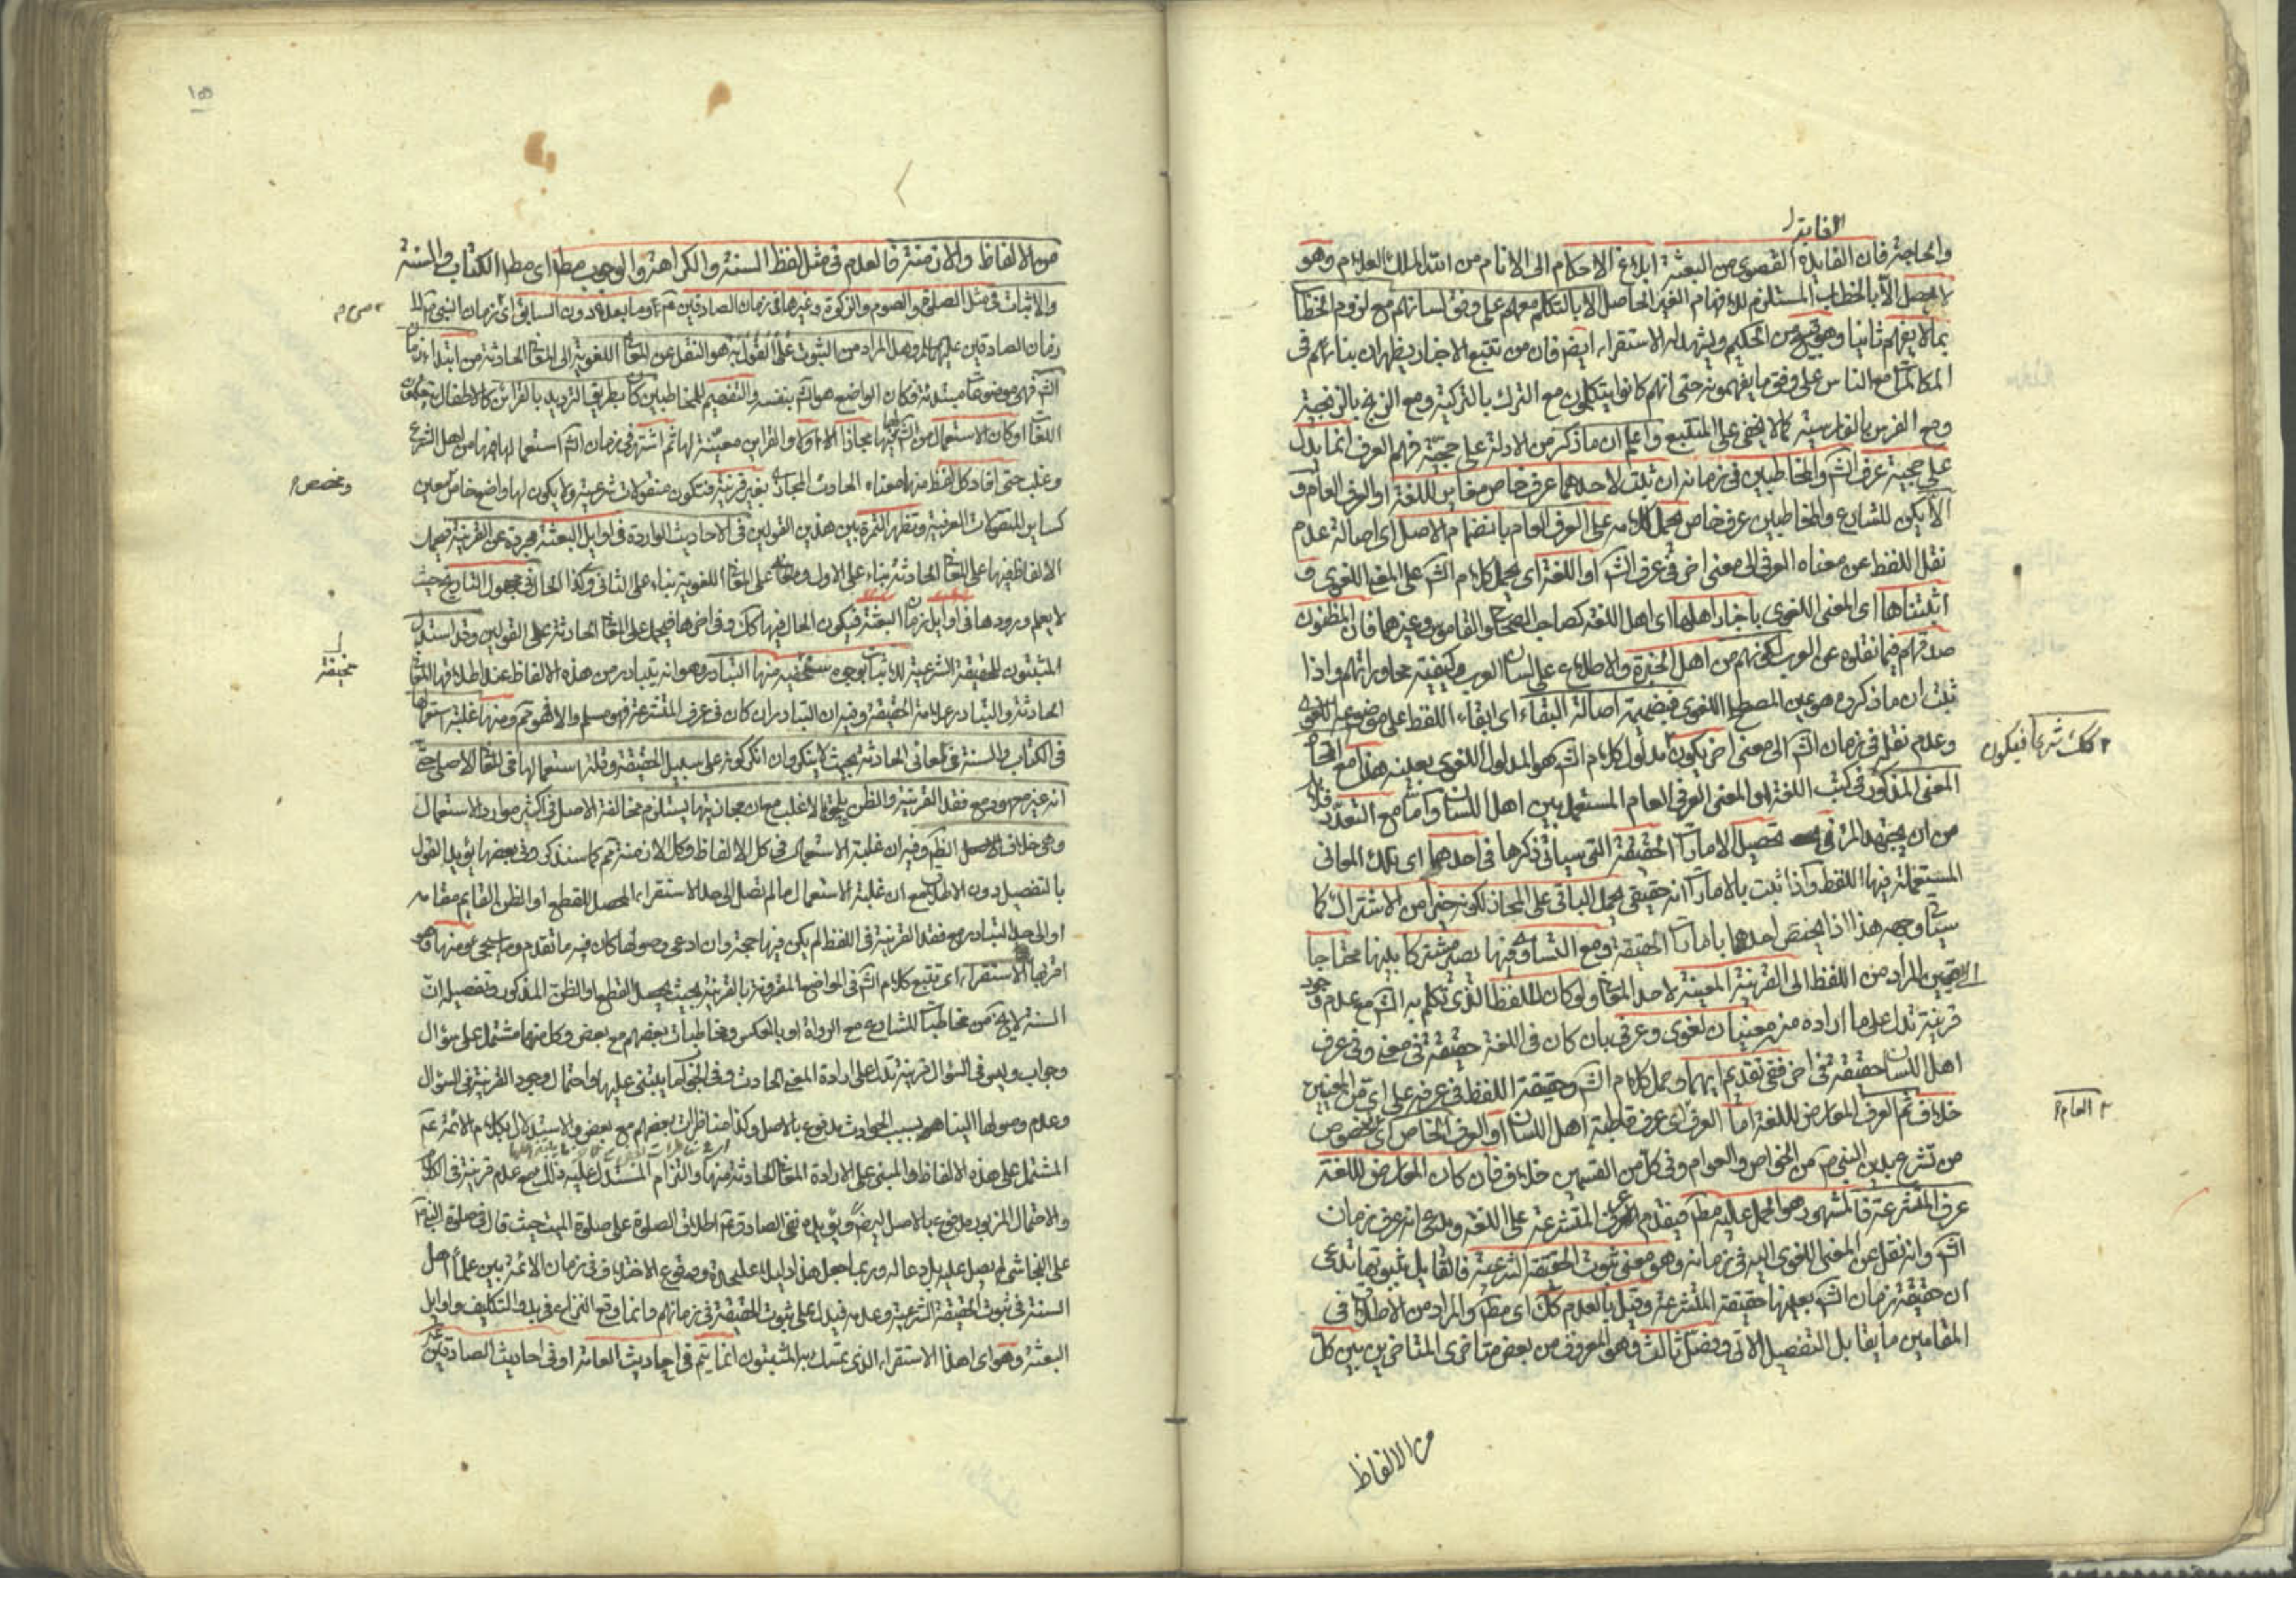 الفايدة
والحاجة فان الفايدة القصوى من البعثة ابلاغ الاحكام الى الانام من الملك العلام وهو
لا يحصل الا بالخطاب المستلزم للافهام الغير الحاصل الا بالتكلم معهم على وفق لسانهم مع لزوم الخطاب
بما لا يفهم ثانيا وهو قبيح من الحكيم ويشهد له الاستقراء ايض فان من تتبع الاخبار يظهر ان بنائهم في
المكالمة مع الناس على وفق ما يفهمونه حتى انهم كانوا يتكلمون مع الترك بالتركية ومع الزنج بالزنجية
ومع الفرس بالفارسية كما لا يخفى على المتتبع واعلم ان ما ذكر من الادلة على حجية فهم العرف انما يدل
على حجية عرف الش والمخاطبين في زمانه ان ثبت لاحدهما عرف خاص مغاير للغة او العرف العام و
الا يكن للشارع والمخاطبين عرف خاص يحمل كلامه على العرف العام بانضمام الاصل اى اصالة عدم
نقل اللفظ عن معناه العرفى الى معنى اخر في عرف الش او اللغة اى يحمل كلام الش على المعنى اللغوى و
اثبتناها اى المعنى اللغوى باخبار اهلها اى اهل اللغة كصاحب الصحاح والقاموس وغيرهما فان المظنون
صدقهم فيما نقلوه عن العرب لكونهم من اهل الخبرة والاطلاع على لسان العرب وكيفية محاوراتهم واذا
ثبت ان ما ذكروه هو عين المصطلح اللغوى فبضميمة اصالة البقاء اى ابقاء اللفظ على موضوعه اللغوى
وعدم نقله في زمان الش الى معنى اخر يكون مدلول كلام الش هو المدلول اللغوى بعينه هذا مع اتحاد
كك شرعا فيكون
المعنى المذكور في كتب اللغة او المعنى العرفى العام المستعمل بين اهل اللسان واما مع التعدد فلا بد
من ان يجتهد المرء في تحصيل الامارات الحقيقة التى سياتى ذكرها في احدهما اى تلك المعانى
المستعملة فيها اللفظ واذا ثبت بالامارات انه حقيقى يحمل الباقى على المجاز لكونه خيرا من الاشتراك كما
سياتى وجهه هذا اذا يختص احدها بامارات الحقيقة ومع التساوى فيها يصير مشتركا بينها محتاجا
لتعيين المراد من اللفظ الى القرينة المعينة لاحد المعانى ولو كان للفظ الذى تكلم به الش مع عدم وجود
قرينة تدل على ما اراده منه معنيان لغوى وعرفى بان كان في اللغة حقيقة في معنى وفي عرف
اهل اللسان حقيقة في اخر ففى تقديم ايهما وحمل كلام الش وحقيقة اللفظ في عرفه على اى من المعنيين
خلاف ثم العرف المعارض للغة اما العرف اى عرف قاطبة اهل اللسان او العرف الخاص اى خصوص
العام
من تشرع بدين النبى ص من الخواص والعوام وفي كل من القسمين خلاف فان كان المعارض للغة
عرف المتشرعة فالمشهور هو الحمل عليه مط فيقدم عرف المتشرعة على اللغة ويدعى انه عرف زمان
الش وانه نقل عن المعنى اللغوى اليه في زمانه وهو معنى ثبوت الحقيقة الشرعية فالقايل بثبوتها يدعى
ان حقيقة زمان الش بعينها حقيقة المتشرعة وقيل بالعدم كك اى مط والمراد من الاطلاق في
المقامين ما يقابل التفصيل الاتى وفصل ثالث وهو المعروف من بعض متاخرى المتاخرين بين كل
من الالفاظ
١٥٥
من الالفاظ والازمنة فالعدم في مثل لفظ السنة والكراهة والوجوب مط اى مط الكتاب والسنة
والاثبات في مثل الصلوة والصوم والزكوة وغيرها في زمان الصادقين ع وما بعده دون السابق اى زمان النبى ص الى
زمان الصادقين عليهما السلام وهل المراد من الثبوت على القول به هو النقل عن المعانى اللغوية الى المعانى الحادثة من ابتداء زمان
الش فهى موضوعات مبتدئة وكان الواضع هو الش بنفسه والتفهيم للمخاطبين كان بطريق الترديد بالقرائن كالاطفال يتعلمون
اللغات او كان الاستعمال من الش فيها مجازا اولا والقراين معينة لها ثم اشتهر في زمان الش استعمالها فيها من اهل الشرع
وغلب حتى افاد كل لفظ منها معناه الحادث المجازى بغير قرينة فتكون منقولات شرعية ولا يكون لها واضع خاص معين
ومخصص
كساير المنقولات العرفية وتظهر الثمرة بين هذين القولين في الاحاديث الواردة في اوايل البعثة مجردة عن القرينة فيحمل
الالفاظ فيها على المعانى الحادثة بناء على الاول وعلى المعانى اللغوية بناء على الثانى وكذا الحال في مجهول التاريخ حيث
لا يعلم ورودها في اوايل زمان البعثة فيكون الحال فيها كك وفي اخرها فيحمل على المعانى الحادثة على القولين وقد استدل
المثبتون للحقيقة الشرعية للاثبات بوجوه سخيفة منها التبادر وهو انه يتبادر من هذه الالفاظ عند اطلاقها المعانى
الحادثة والتبادر علامة الحقيقة وفيه ان التبادر ان كان في عرف المتشرعة فهو مسلم والا فهو مم ومنها غلبة استعمالها
في الكتاب والسنة في المعانى الحادثة بحيث لا ينكر وان انكر كونه على سبيل الحقيقة وقلة استعمالها في المعانى الاصلى حتى
انه غير معهود مع فقد القرينة والظن يلحق بالاغلب مع ان مجازيتها يستلزم مخالفة الاصل في اكثر موارد الاستعمال
وهى خلاف الظم وفيه ان غلبة الاستعمال في كل الالفاظ وكل الازمنة مم كما سنذكره في بعضها يؤيد القول
بالتفصيل دون الاطلاق مع ان غلبة الاستعمال ما لم تصل الى حد الاستقراء المحصل للقطع او الظن القايم مقامه
او الى حد التبادر مع فقد القرينة في اللفظ لم يكن فيها حجة وان ادعى وصولها كان فيه ما تقدم وما سيجئ ومنها وهو
اقربها الاستقراء اى تتبع كلام الش في المواضع المقرونة بالقرينة بحيث يحصل القطع او الظن المذكور وتفصيله ان
السنة لا يخ من مخاطبات للشارع مع الرواة او بالعكس ومخاطبات بعضهم مع بعض وكل منهما مشتمل على سؤال
وجواب وليس في السؤال قرينة تدل على ارادة المعنى الحادث وفي الجواب كما يبتنى عليها واحتمال وجود القرينة في السؤال
وعدم وصولها الينا بسبب الحوادث مدفوع بالاصل وكذا مناظرات بعضهم مع بعض والاستدلال بكلام الائمة ع
المشتمل على هذه الالفاظ والمبنى على الارادة المعانى الحادثة منها والتزام المستدل عليه ذلك مع عدم قرينة في الكلام
والاحتمال المزبور مدفوع بالاصل ايض ويؤيده نفى الصادق ع اطلاق الصلوة على صلوة الميت حيث قال في صلوة النبى ص
على النجاشى لم يصل عليه بل دعا له وربما جعل هذا دليلا عليحدة وقوع الاختلاف في زمان الائمة بين علماء اهل
السنة في ثبوت الحقيقة الشرعية وعدمه فيدل على ثبوت الحقيقة في زمانهم وانما وقع النزاع في بدو التكليف واوايل
البعثة وهو اى هذا الاستقراء الذى تمسك به المثبتون انما يتم في احاديث العامة او في احاديث الصادقين